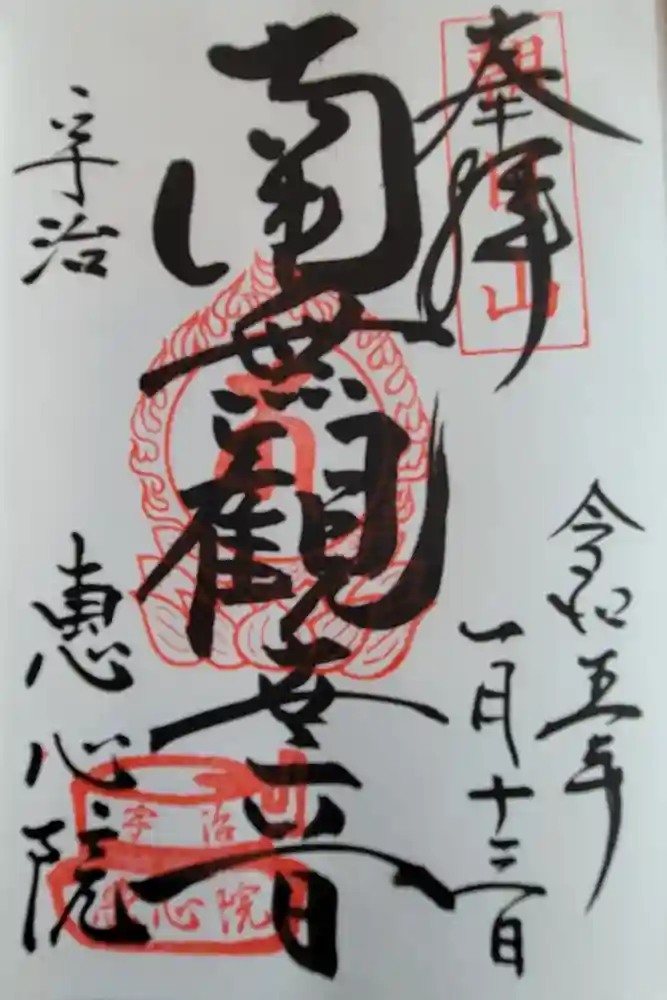 奉拝
朝日山
令和五年
一月十三日
南無觀世音
宇治
恵心院
宇治
恵心院